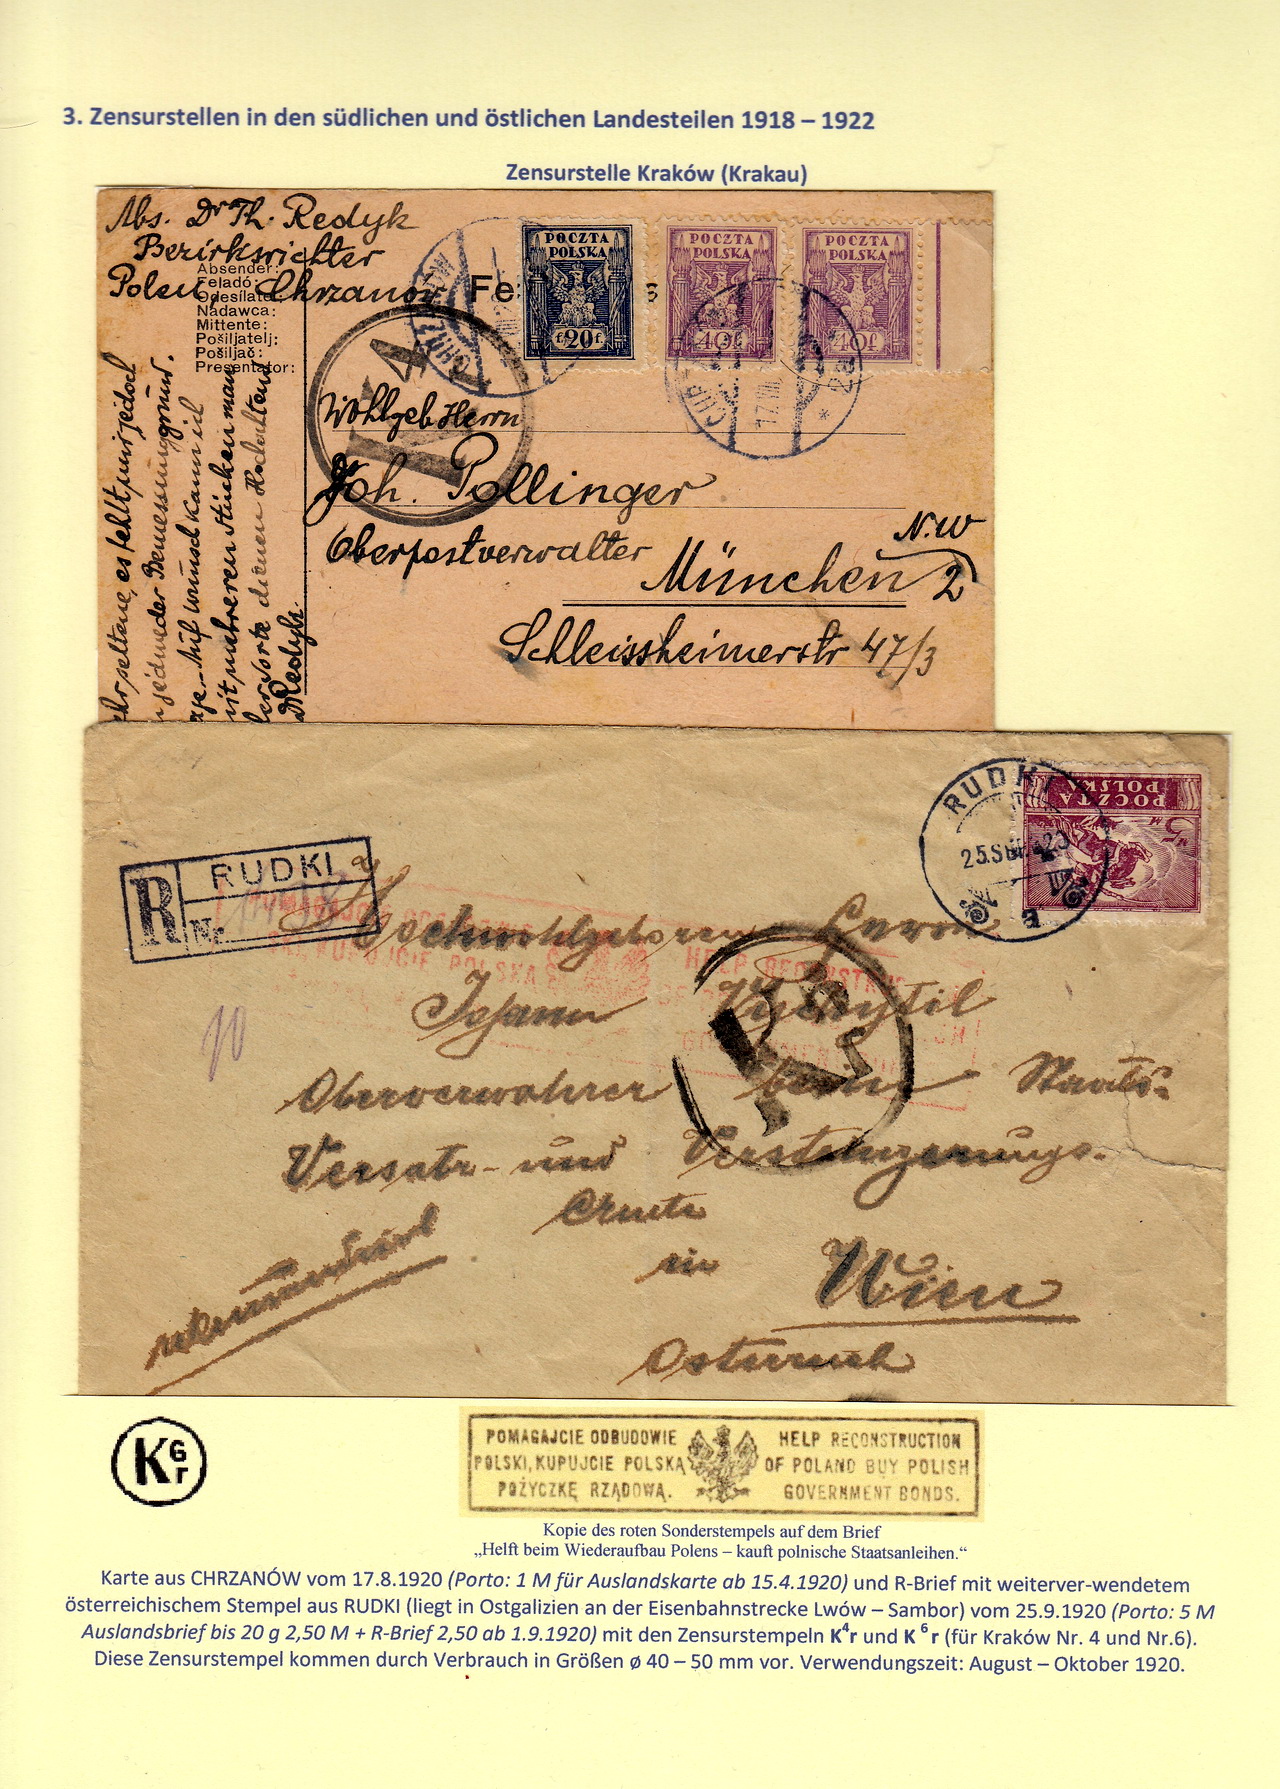 3. Zensurstellen in den südlichen und östlichen Landesteilen 1918 – 1922
Zensurstelle Kraków (Krakau)
Abs. Dr Th. Redyk
Bezirksrichter
Polen, Chrzanów
Absender:
Feladó:
Odesílatel:
Nadawca:
Mittente:
Pošiljatelj:
Pošiljač:
Presentator:
Fe
s
POCZTA POLSKA
20 f
POCZTA POLSKA
40 f
POCZTA POLSKA
40 f
CHRZANÓW
17 VIII
2a
K 4
Wohlgeb. Herrn
Joh. Pollinger
Oberpostverwalter
München N.W 2
Schleissheimerstr 47/3
seltene, es fehlt mir jedoch
jedweder Bemessungsgrund.
Auf Wunsch kann ich
mit mehreren Stücken man
Sorte dienen Hochachtend
DRedyk.
RUDKI
25.SEP.20
E
POCZTA POLSKA
5 M
R RUDKI
Nr.
Hochwohlgeboren Herrn
Johann
HELP RECONSTRUC
KUPUJCIE POLSKĄ
K 6 r
10
Oberverwahrer beim Staats-
Versatz- und Versteigerungs-
Amte
in Wien
Österreich
rekommandiert
K 6 r
POMAGAJCIE ODBUDOWIE
POLSKI, KUPUJCIE POLSKĄ
POŻYCZKĘ RZĄDOWĄ.
HELP RECONSTRUCTION
OF POLAND BUY POLISH
GOVERNMENT BONDS.
Kopie des roten Sonderstempels auf dem Brief
„Helft beim Wiederaufbau Polens – kauft polnische Staatsanleihen.“
Karte aus CHRZANÓW vom 17.8.1920 (Porto: 1 M für Auslandskarte ab 15.4.1920) und R-Brief mit weiterver-wendetem
österreichischem Stempel aus RUDKI (liegt in Ostgalizien an der Eisenbahnstrecke Lwów – Sambor) vom 25.9.1920 (Porto: 5 M
Auslandsbrief bis 20 g 2,50 M + R-Brief 2,50 ab 1.9.1920) mit den Zensurstempeln K4r und K 6 r (für Kraków Nr. 4 und Nr.6).
Diese Zensurstempel kommen durch Verbrauch in Größen ø 40 – 50 mm vor. Verwendungszeit: August – Oktober 1920.